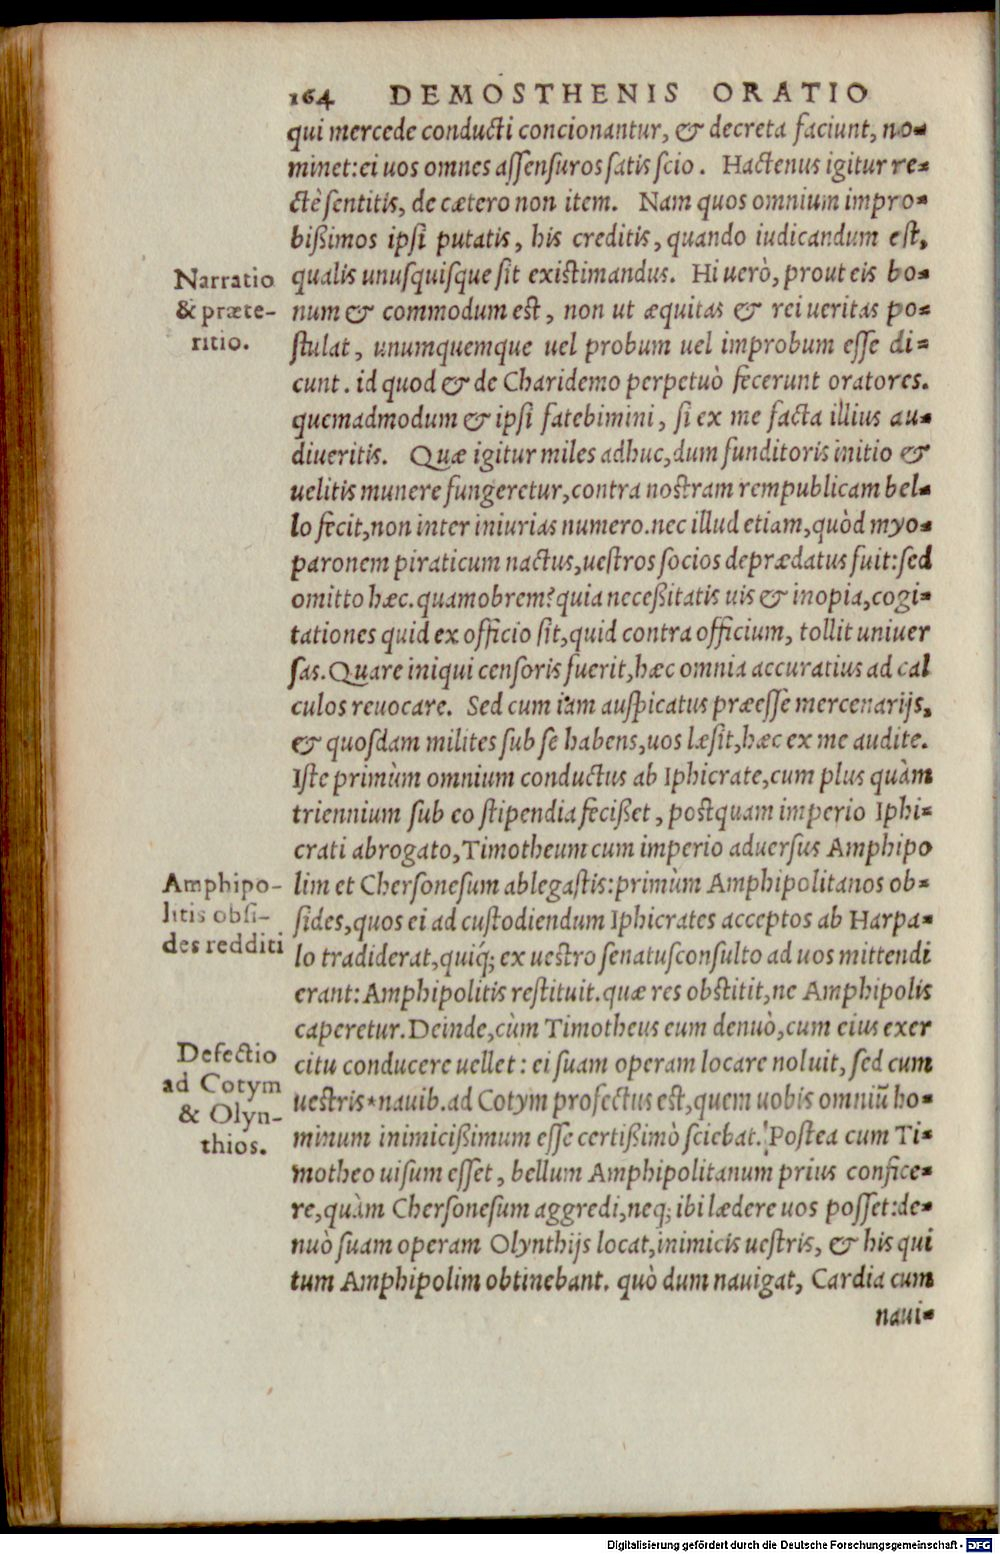 164 DEMOSTHENIS ORATIO
qui mercede conducti concionantur, & decreta faciunt, no-
minet: ei uos omnes assensuros satis scio. Hactenus igitur re-
ctè sentitis, de cætero non item. Nam quos omnium impro-
bißimos ipsi putatis, his creditis, quando iudicandum est,
qualis unusquisque sit existimandus. Hi uerò, prout eis bo-
num & commodum est, non ut æquitas & rei ueritas po-
stulat, unumquemque uel probum uel improbum esse di-
cunt. id quod & de Charidemo perpetuò fecerunt oratores.
quemadmodum & ipsi fatebimini, si ex me facta illius au-
diueritis. Quæ igitur miles adhuc, dum funditoris initio &
uelitis munere fungeretur, contra nostram rempublicam bel-
lo fecit, non inter iniurias numero. nec illud etiam, quòd myo-
paronem piraticum nactus, uestros socios deprædatus fuit: sed
omitto hæc. quamobrem? quia neceßitatis uis & inopia, cogi-
tationes quid ex officio sit, quid contra officium, tollit uniuer
sas. Quare iniqui censoris fuerit, hæc omnia accuratius ad cal
culos reuocare. Sed cum iam auspicatus præesse mercenarijs,
& quosdam milites sub se habens, uos læsit, hæc ex me audite.
Iste primùm omnium conductus ab Iphicrate, cum plus quàm
triennium sub eo stipendia fecißet, postquam imperio Iphi-
crati abrogato, Timotheum cum imperio aduersus Amphipo
lim et Chersonesum ablegastis: primùm Amphipolitanos ob-
sides, quos ei ad custodiendum Iphicrates acceptos ab Harpa-
lo tradiderat, quiq́; ex uestro senatusconsulto ad uos mittendi
erant: Amphipolitis restituit. quæ res obstitit, ne Amphipolis
caperetur. Deinde, cùm Timotheus eum denuò, cum eius exer
citu conducere uellet: ei suam operam locare noluit, sed cum
uestris*nauib. ad Cotym profectus est, quem uobis omniū ho-
minum inimicißimum esse certißimò sciebat. Postea cum Ti-
motheo uisum esset, bellum Amphipolitanum prius confice-
re, quàm Chersonesum aggredi, neq; ibi lædere uos posset: de-
nuò suam operam Olynthijs locat, inimicis uestris, & his qui
tum Amphipolim obtinebant. quò dum nauigat, Cardia cum
naui-
Narratio
& præte-
ritio.
Amphipo-
litis obsi-
des redditi
Defectio
ad Cotym
& Olyn-
thios.
Digitalisierung gefördert durch die Deutsche Forschungsgemeinschaft - DFG